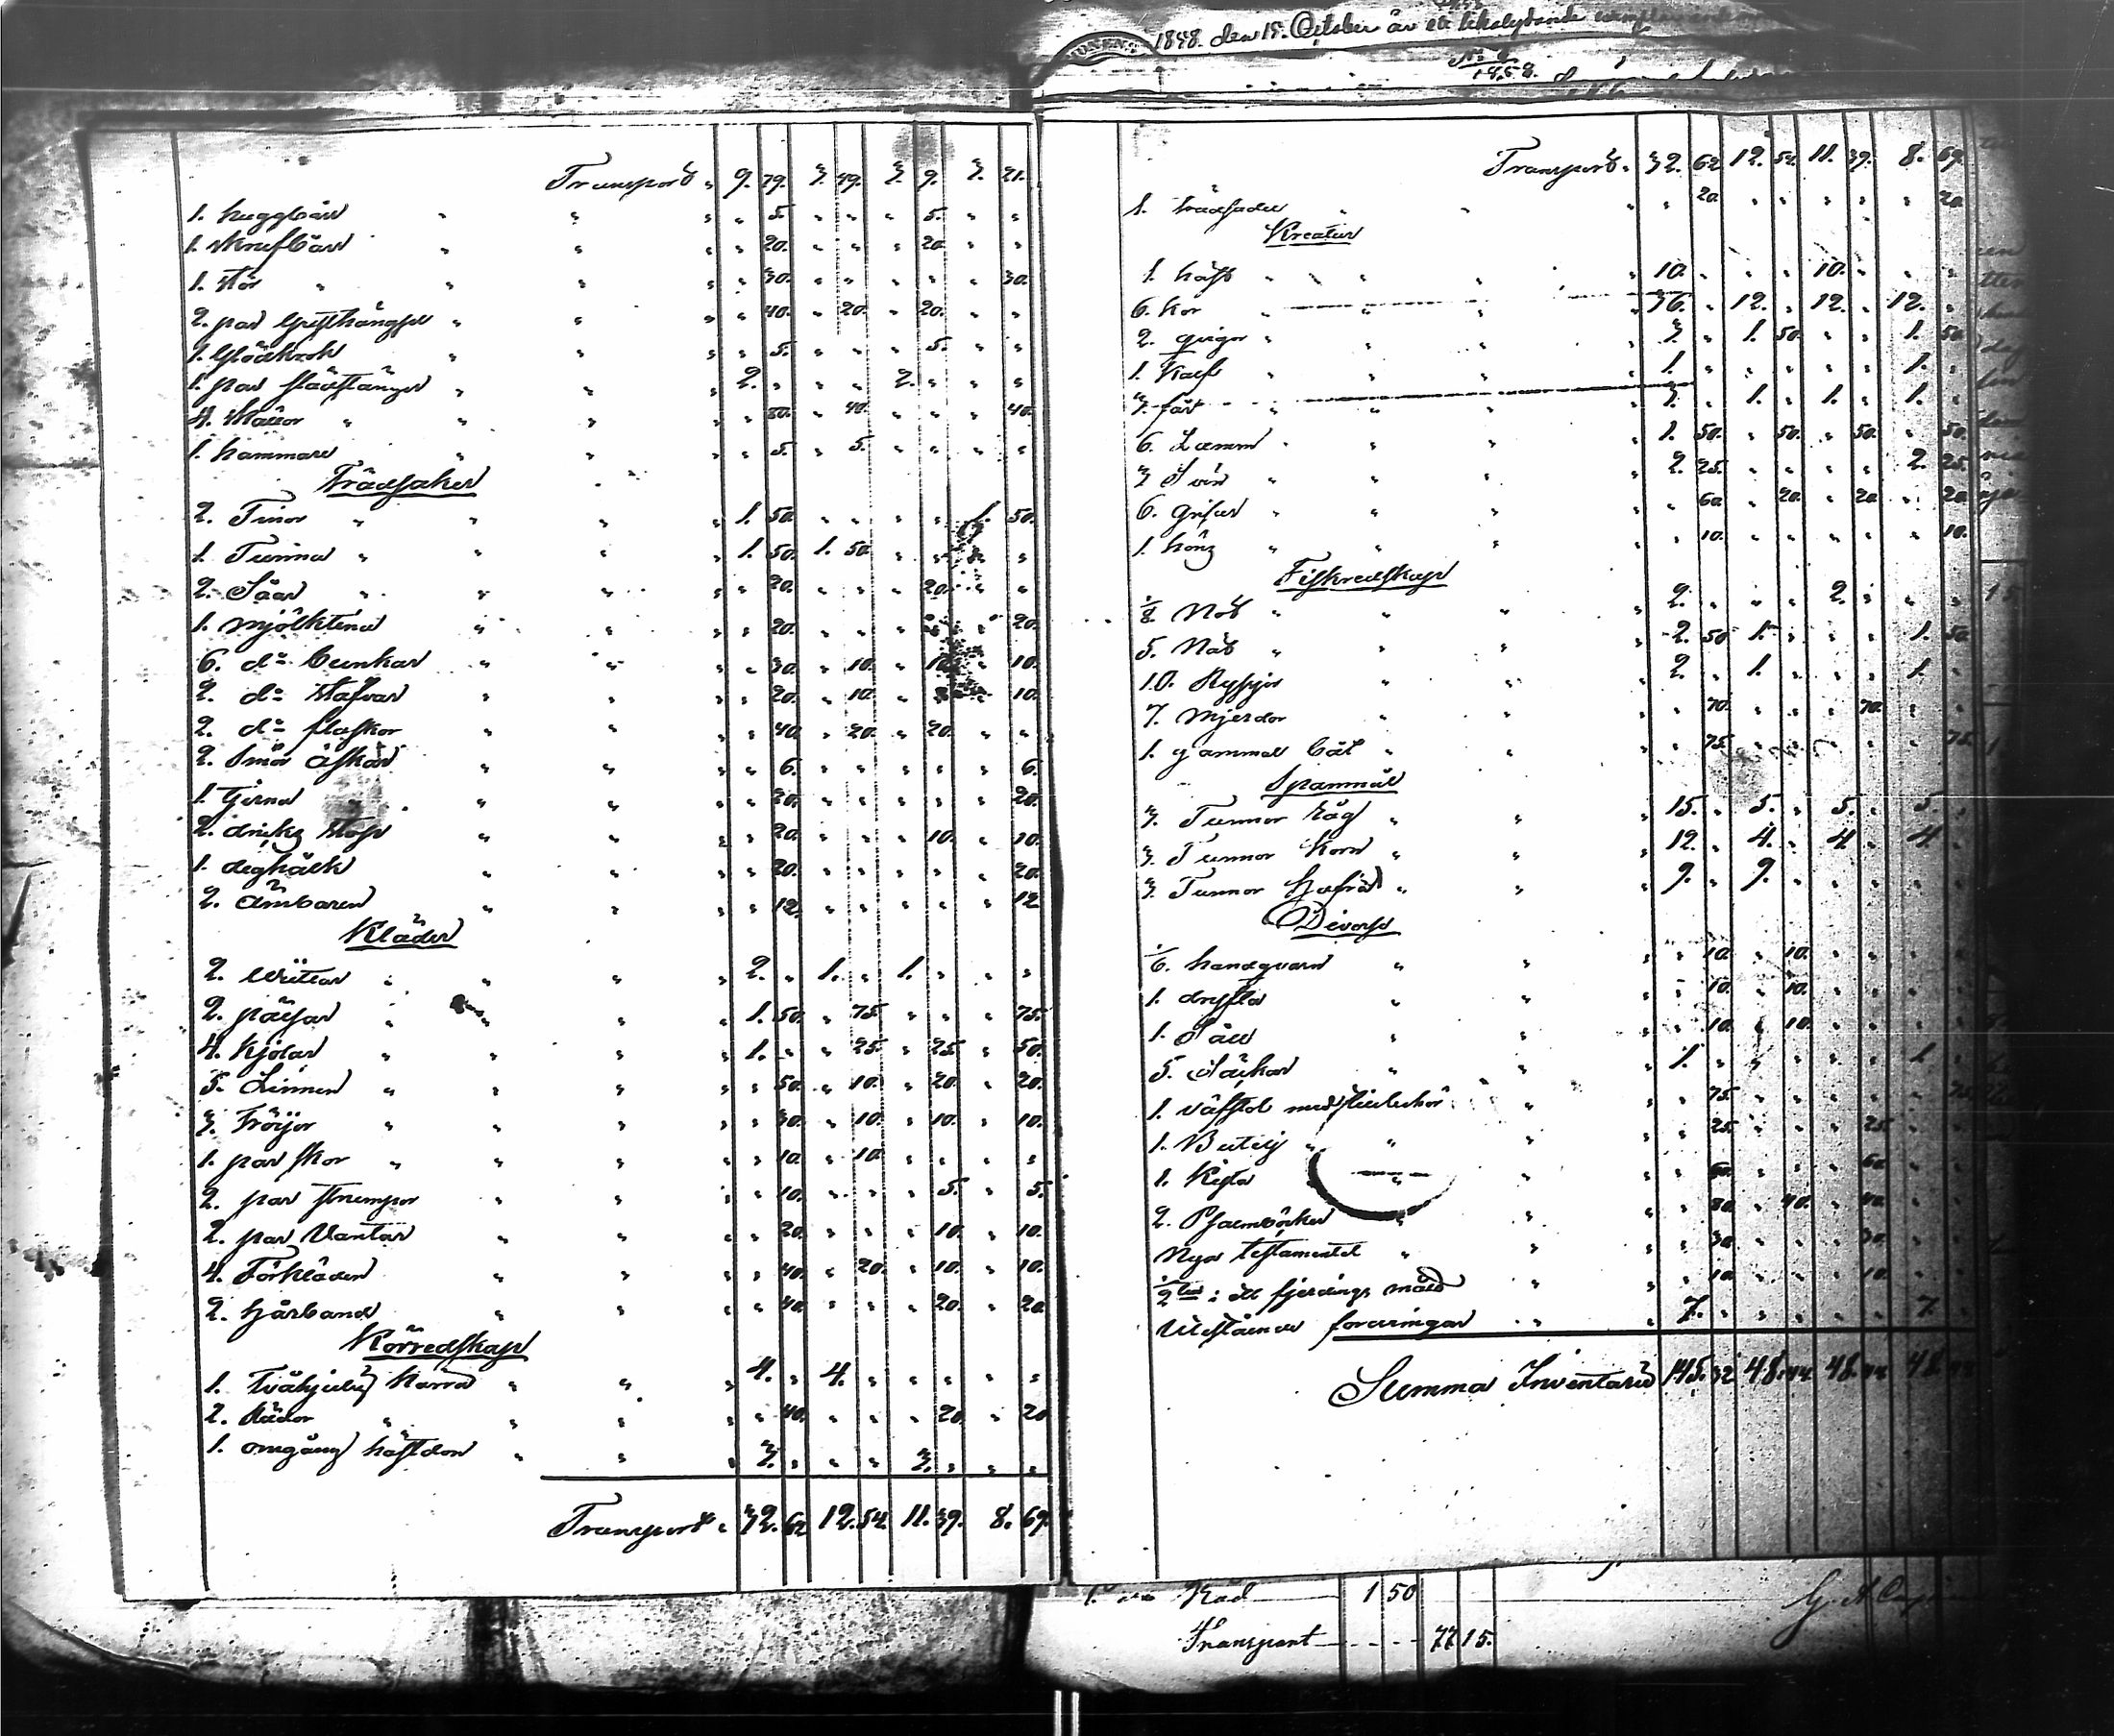 1848. den 15. October är ett likalydande
Transport " 9. 79. 3. 49. 3. 9. 3. 21.
1. huggbärr " " " " 5. " " " 5. " "
1. skrufbärr " " " " 20. " " " 20. " "
1. stör " " " " " 30. " " " " " 30.
2. par " " " " 40. " 20. " 20. " "
1. Glödkrok " " " " 5. " " " 5. " "
1. par " " " 2. " " " 2. " " "
4. skäror " " " " 80. " 40. " " " 40.
1. hammare " " " " 5. " 5. " " " "
Trädsaker
2. Tinor " " " " 1. 50. " " " " 1. 50.
1. Tunna " " " " 1. 50. 1. 50. " " " "
2. Såar " " " " " 20. " " " 20. " "
1. mjölktina " " " " 20. " " " " " 20.
6. d:o bunkar " " " " 30. " 10. " 10. " 10.
2. d:o stäfvar " " " " 20. " 10. " " " 10.
2. d:o flaskor " " " " 40. " 20. " 20. " "
2. smör askar " " " " 6. " " " " " 6.
1. tjerna " " " " 20. " " " " " 20.
2. dricks stop " " " " 20. " " " 10. " 10.
1. deghälk " " " " 20. " " " " " 20.
2. ämbaren " " " " 12. " " " " " 12
Kläder
2. " " " " 2. " 1. " 1. " " "
2. päljar " " " 1. 50. " 75. " " " 75.
4. Kjolar " " " " 1. " " 25. " 25. " 50.
5. Linnen " " " " " 50. " 10. " 20. " 20.
3. Tröijor " " " " " 30. " 10. " 10. " 10.
1. par skor " " " " " 10. " 10. " " " "
2. par strumpor " " " " 10. " " " 5. " 5.
2. par Vantar " " " " 20. " " " 10. " 10.
4. Förkläden " " " " 40. " 20. " 10. " 10.
2. hårband " " " " 40. " " " 20. " 20.
Körredskap
1. tvåhjulig kärra " " " 4. " 4. " " " " "
2. slädor " " " " " 40. " " " 20. " 20
1. omgång hästdon " " " 3. " " " 3. " " "
Transport " 32. 62 12. 54. 11. 39. 8. 69.
Transport. " 32. 62 12. 54. 11. 39. 8. 69.
1. " " " " 20. " " " " " 20.
Kreatur
1. häst " " " " 10. " " " 10. " " "
6. kor " " " 36. " 12. " 12. " 12. "
2. qvigor " " " " 3. " 1. 50. " " 1. 50
1. Kalf " " " " 1. " " " " " 1. "
3. får " " " " 3. " 1. " 1. " 1. "
6. Lamm " " " 1. 50. " 50. " 50. " 50.
3 Svin " " " " 2. 25. " " " " 2. 25.
6. grisar " " " " 60. " 20. " 20. " 20.
1. höns " " " " " 10. " " " " " 10.
Fiskredskap
½ Not " " " " 2. " " " 2. " " "
5. Nät " " " " 2. 50 1. " " " 1. 50
10. Ryssjor " " " 2. " 1. " " " 1. "
7. mjerdor " " " " 70. " " " 70. " "
1. gammal båt " " " " 75. " " " " " 75.
Spannmål
3. Tunnor råg " " " 15. " 5. " 5. " 5. "
3. Tunnor korn " " " 12. " 4. " 4. " 4. "
3. Tunnor hafra " " " 9. " 9. " " " " "
Diverse
⅙. handqvarn " " " " 10. " 10. " " " "
1. dryfta " " " " 10. " 10. " " " "
1. Såll " " " " 10. " 10. " " " "
5. säckar " " " 1. " " " " " 1. "
1. väfstol med tillbehör " " " 75. " " " " " 75.
1. Butelj " " " " " 25. " " " 25. " "
1. Kista " " " " 60. " " " 60 " "
2. Psalmböcker " " " " 80. " 40. " 40. " "
Nya testamentet " " " " 30. " " " 30. " "
½ fjerdings mått " " " 10. " " " 10. " "
Utestående fordringar " " " 7. " " " " " 7. "
Summa Inventarii 145. 32 48. 44 48. 44 48. 44
1 50
Transport 77 15.